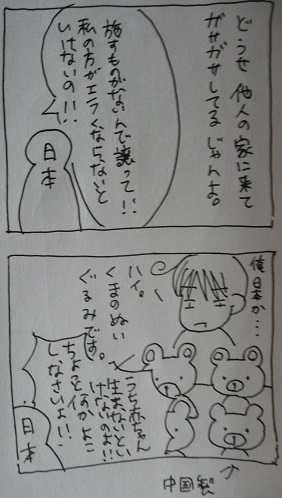 どうせ他人の家に来て
ガサガサしてるじゃんよ。
施すものがないんで譲って!!
私の方がエラくならないと
いけないの!!
日本
俺日本か…
ハイ。
くまのぬい
ぐるみです。
うち赤ちゃん
生まないとい
けないのよ!!
ちよこ
しなさいよ!!
日本
中国製